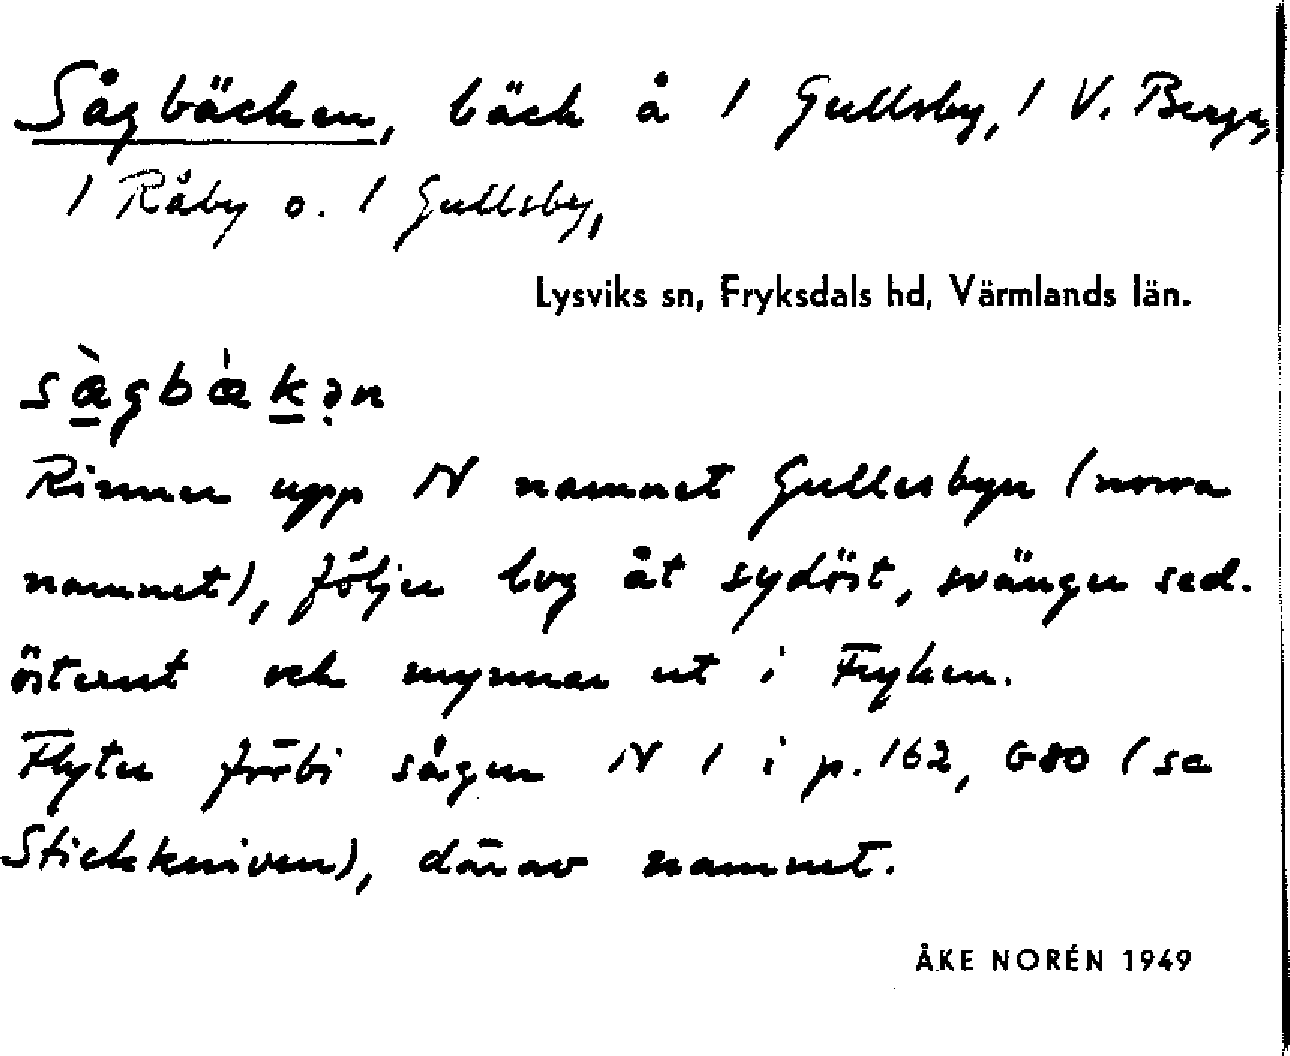 Sågbäcken, bäck å / Gullsby, / V. Berga,
/ Råby o. / Gullsby,
Lysviks sn, Fryksdals hd, Värmlands län.
Rinner upp N namnet Gullesbyn (norra
namnet), följer höjd åt sydöst, svänger sed.
österut och mynnar ut i Fryken.
Flyter förbi sågen N / i p. 162, G80 (se
Stickkniven), därav namnet.
ÅKE NORÉN 1949